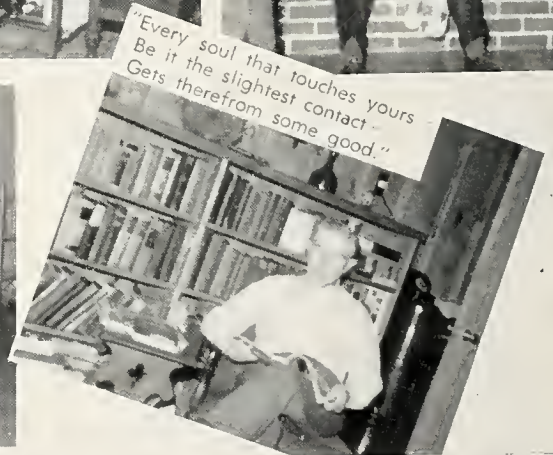 "Every soul that touches yours
Be it the slightest contact
Gets therefrom some good."